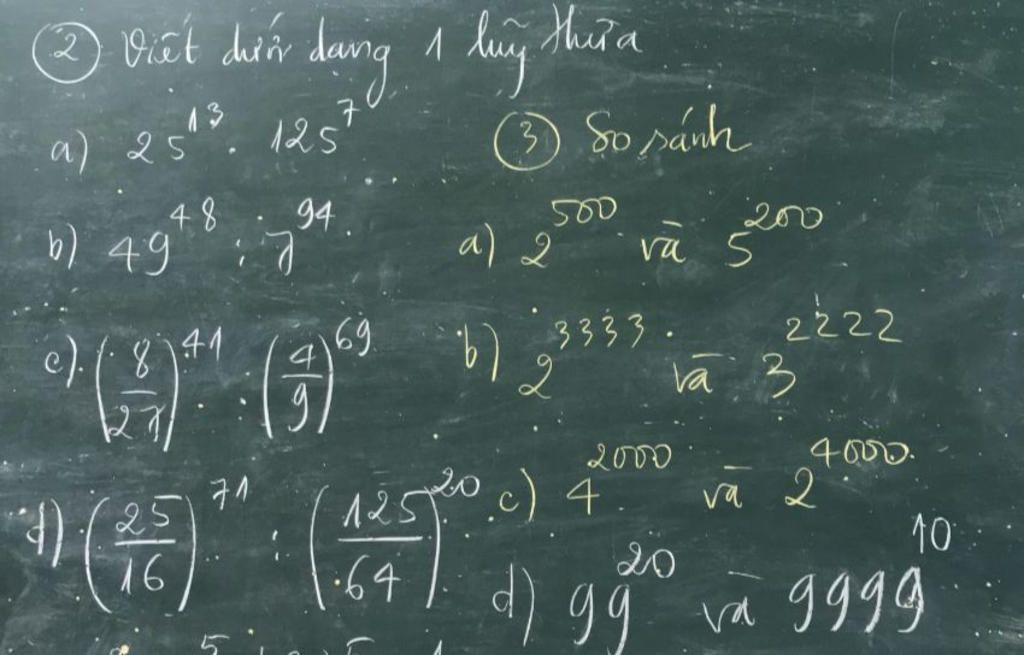 ② Viết dưới dạng 1 luỹ thừa
a) 25^13 . 125^7
b) 49^48 : 7^94
c) (8/27)^41 : (4/9)^69
d) (25/16)^71 : (125/64)^20
③ So sánh
a) 2^500 và 5^200
b) 2^3333 và 3^2222
c) 4^2000 và 2^4000
d) 99^20 và 9999^10